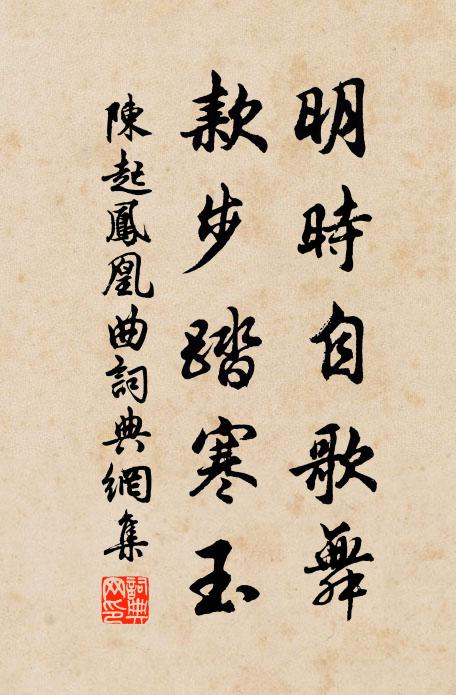 明時自歌舞
款步踏寒玉
陳起鳳凰曲詞典網集
詞典
网印